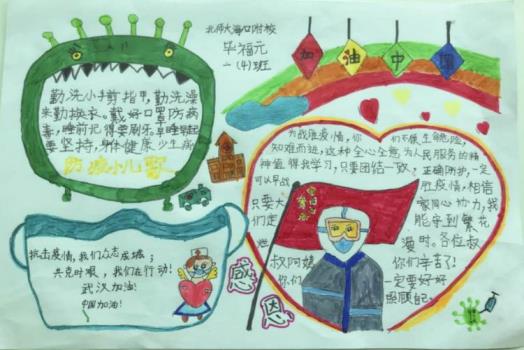 北师大海口附校
毕福元
一(4)班
加油中国
勤洗小手剪指甲,勤洗澡
来勤换衣。戴好口罩防病
毒,睡前记得要刷牙,早睡早起
要坚持,身体健康少生病
防疫小儿歌
抗击疫情,我们众志成城;
共克时艰,我们在行动!
武汉加油!
中国加油!
感恩
为战胜疫情,你们不畏生命危险,
知难而进,这种全心全意为人民服务的精
神值得我学习,只要团结一致,正确防护,一定
可以早战胜疫情,相信
只要大家同心协力,我
们走能守到繁花
漫时。各位叔
叔阿姨你们辛苦了!
你们一定要好好
照顾自己。